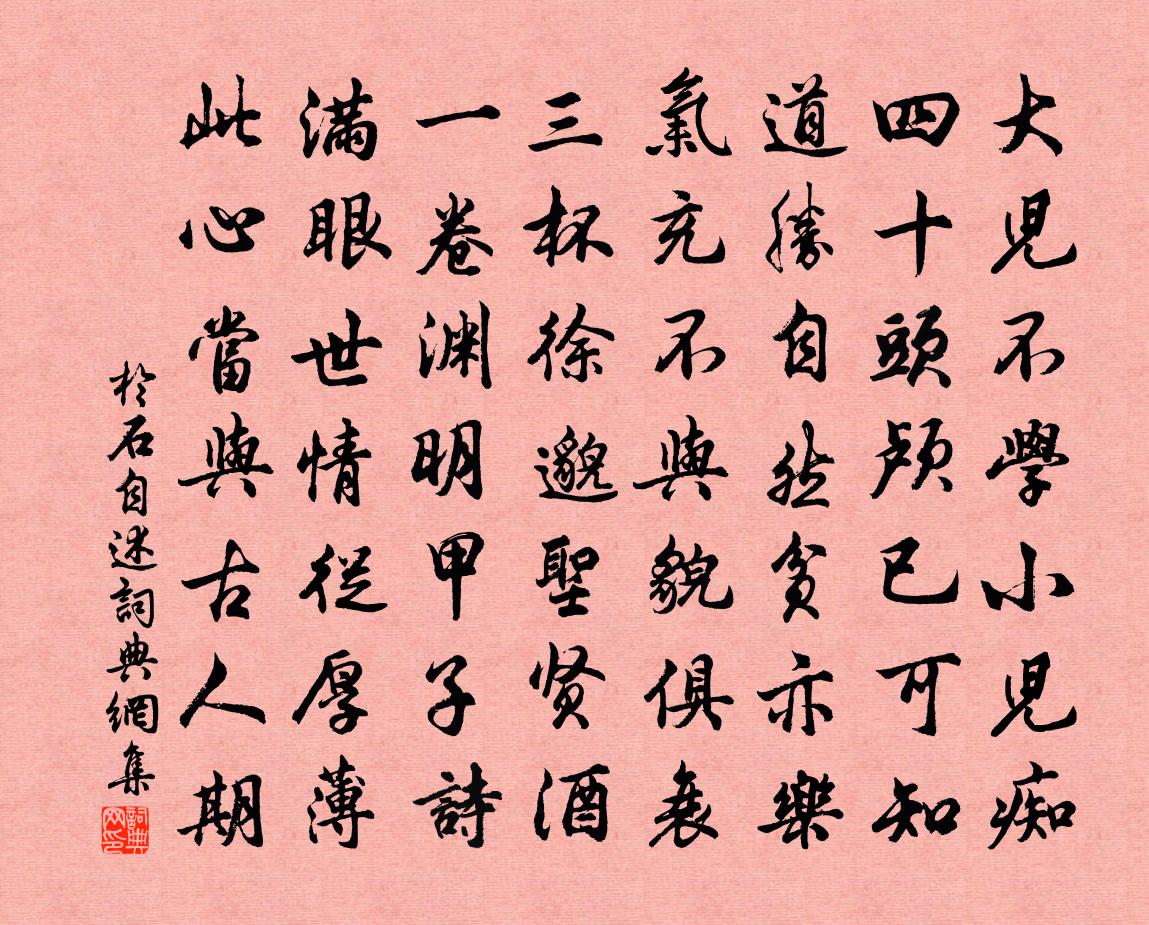 大兒不學小兒痴
四十頭顱已可知
道勝自然貧亦樂
氣充不與貌俱衰
三杯徐邈聖賢酒
一卷渊明甲子詩
滿眼世情從厚薄
此心當與古人期
於石自述詞典網集
詞典网印